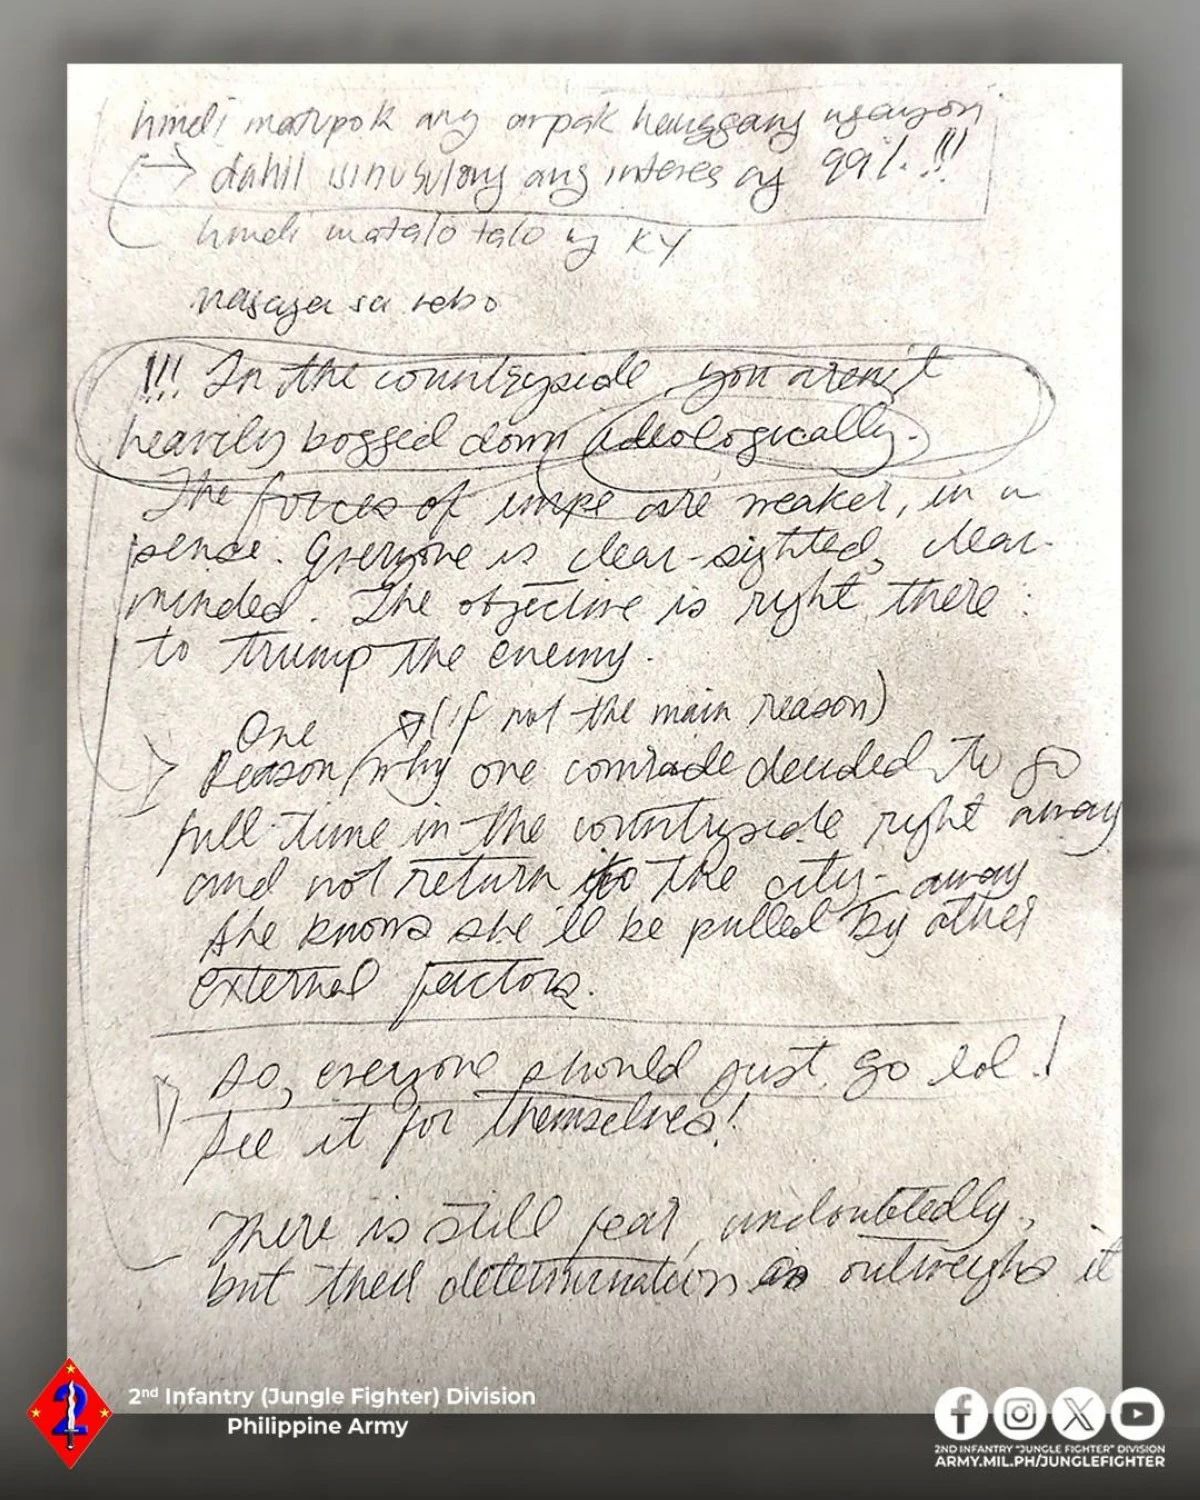 hindi matupok ang arpak hanggang ngayon
→ dahil isinusulong ang interes ng 99%. !!!
hindi matalo talo ng KY
nasaya sa rebo
!!! In the countryside you aren't
heavily bogged down ideologically.
The forces of impe are weaker, in a
sense. Everyone is clear-sighted, clear-
minded. The objective is right there:
to trump the enemy.
(if not the main reason)
One
Reason why one comrade decided to go
full time in the countryside right away
and not return to the city - away
She knows she'll be pulled by other
external factors.
So, everyone should just go lol!
See it for themselves!
There is still fear, undoubtedly,
but their determination outweighs it
2nd Infantry (Jungle Fighter) Division
Philippine Army
2ND INFANTRY "JUNGLE FIGHTER" DIVISION
ARMY.MIL.PH/JUNGLEFIGHTER